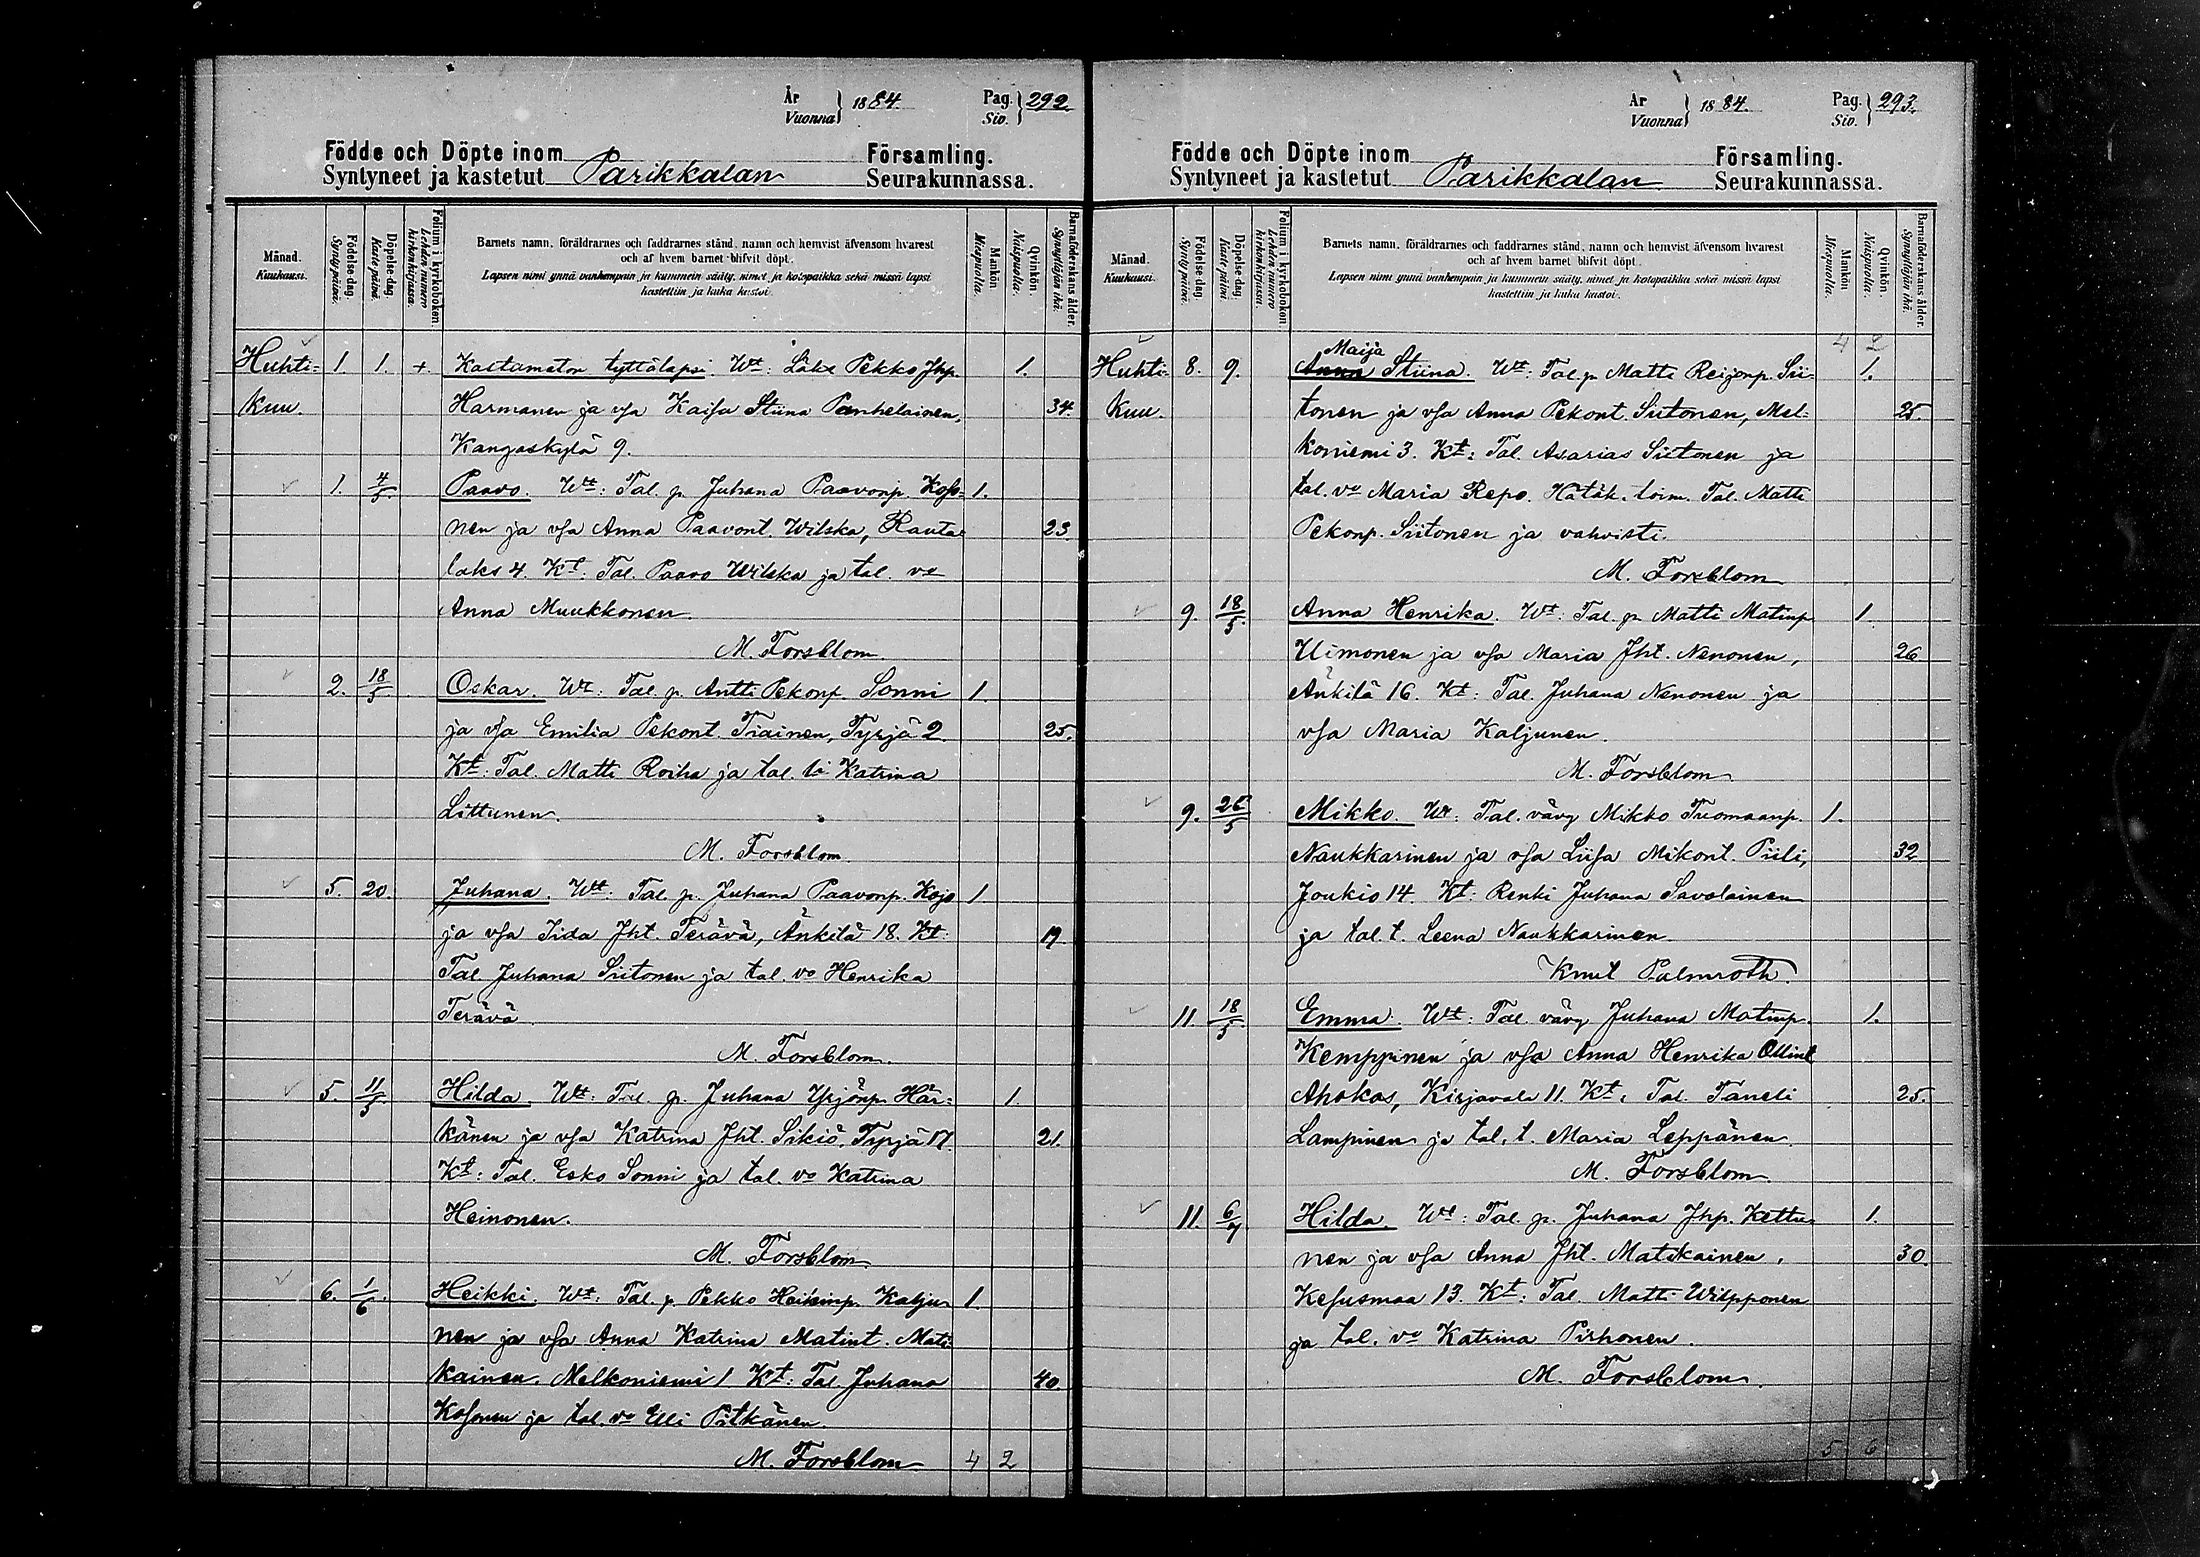 År
Vuonna } 1884.
Pag.
Siv. } 292.
Födde och Döpte inom Parikkalan Församling.
Syntyneet ja kastetut Seurakunnassa.
Månad.
Kuukausi.
Födelse-dag.
Syntypäivä.
Döpelse-dag.
Kastepäivä.
Folium i kyrkoboken
Lehden numero kirkonkirjassa.
Barnets namn, föräldrarnes och faddrarnes stånd, namn och hemvist äfvensom hvarest
och af hvem barnet blifvit döpt.
Lapsen nimi ynnä vanhempain ja kummein sääty, nimet ja kotopaikka sekä missä lapsi
kastettiin ja kuka kastoi.
Mankön
Miespuolia.
Qvinkön.
Naispuolia.
Barnaföderskans ålder.
Synnyttäjän ikä.
Huhti= 1. 1. + Kastamaton tyttölapsi. Wt: Läks Pekko Jhp. 1.
Kuu. Harmanen ja vsa Kaisa Stiina Panhelainen, 34.
Kangaskylä 9.
1. 4/5 Paavo. Wt: Tal. p. Juhana Paavonp. Koso= 1.
nen ja vsa Anna Paavont. Wilska, Rauta= 23
laks 4. Kt: Tal. Paavo Wilska ja tal. vo
Anna Muukkonen.
M. Forsblom
2. 18/5 Oskar. Wt: Tal. p. Antti Pekonp. Sonni 1.
ja vsa Emilia Pekont. Tiainen, Tyrjä 2. 25.
Kt: Tal. Matti Roiha ja tal. t. Katrina
Littunen.
M. Forsblom
5. 20. Juhana. Wt: Tal. p. Juhana Paavonp. Kojo 1
ja vsa Iida Jht. Terävä, Änkilä 18. Kt: 19
Tal. Juhana Siitonen ja tal. vo Henrika
Terävä
M. Forsblom.
5. 11/5 Hilda. Wt: Tal. p. Juhana Yrjönp. Här= 1.
känen ja vsa Katrina Jht. Sikiö, Tyrjä 17. 21.
Kt: Tal. Esko Sonni ja tal. vo Katrina
Heinonen.
M. Forsblom
6. 1/6 Heikki. Wt: Tal. p. Pekko Heikinp. Kalju= 1.
nen ja vsa Anna Katrina Matint. Mati=
kainen, Melkoniemi 1 Kt: Tal. Juhana 40.
Kosonen ja tal. vo Elli Pitkänen.
M. Forsblom 4 2
År
Vuonna } 1884.
Pag.
Siv. } 293.
Födde och Döpte inom Parikkalan Församling.
Syntyneet ja kastetut Seurakunnassa.
Månad.
Kuukausi.
Födelse-dag.
Syntypäivä.
Döpelse-dag.
Kastepäivä.
Folium i kyrkoboken
Lehden numero kirkonkirjassa.
Barnets namn, föräldrarnes och faddrarnes stånd, namn och hemvist äfvensom hvarest
och af hvem barnet blifvit döpt.
Lapsen nimi ynnä vanhempain ja kummein sääty, nimet ja kotopaikka sekä missä lapsi
kastettiin ja kuka kastoi.
Mankön
Miespuolia.
Qvinkön.
Naispuolia.
Barnaföderskans ålder.
Synnyttäjän ikä.
4 2
Maija
Huhti- 8. 9. Anna Stiina. Wt: Tal. p. Matti Reijonp. Sii= 1.
Kuu. tonen ja vsa Anna Pekont. Siitonen, Mel= 25.
koniemi 3. Kt: Tal. Asarias Siitonen ja
tal. vo Maria Repo. Hätäk. toim. Tal. Matti
Pekonp. Siitonen ja vahvisti.
M. Forsblom
9. 18/5 Anna Henrika. Wt: Tal. p. Matti Matinp 1.
Uimonen ja vsa Maria Jht. Nenonen, 26
Änkilä 16. Kt: Tal. Juhana Nenonen ja
vsa Maria Kaljunen.
M. Forsblom
9. 25/5 Mikko. Wt: Tal. vävy Mikko Tuomaanp. 1.
Naukkarinen ja vsa Liisa Mikont. Piili, 32
Joukio 14. Kt: Renki Juhana Savolainen
ja tal. t. Leena Naukkarinen.
Knut Palmroth.
11. 18/5 Emma. Wt: Tal. vävy Juhana Matinp. 1.
Kemppinen ja vsa Anna Henrika Ollint
Ahokas, Kirjavala 11. Kt: Tal. Taneli 25.
Lampinen ja tal. t. Maria Leppänen.
M. Forsblom
11. 6/7 Hilda. Wt: Tal. p. Juhana Jhp. Kettu= 1.
nen ja vsa Anna Jht. Matikainen, 30.
Kesusmaa 13. Kt: Tal. Matti Wilpponen
ja tal. vo Katrina Pirhonen.
M. Forsblom.
5 6